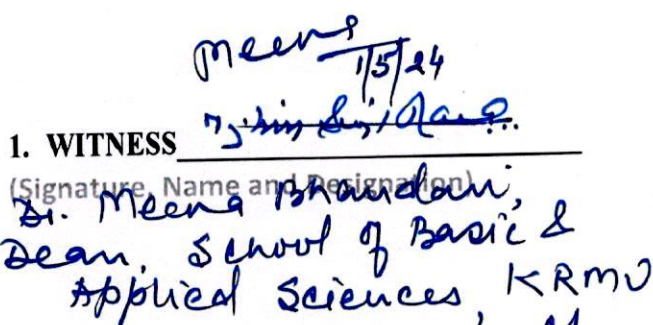 Meena
1/5/24
1. WITNESS
(Signature, Name and Designation)
Dr. Meena Bhandari,
Dean, School of Basic &
Applied Sciences, KRMU